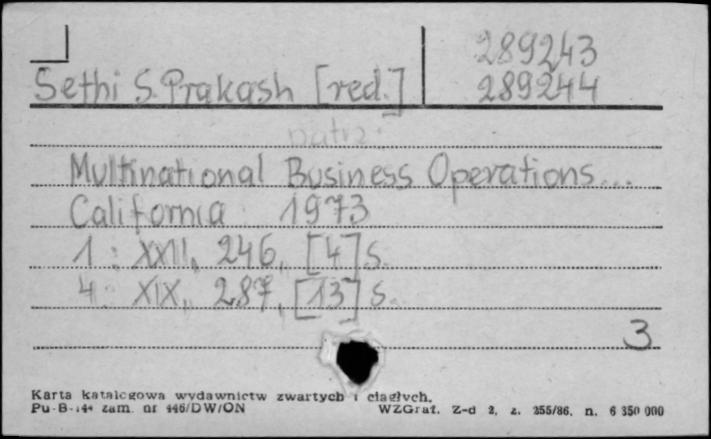 289243
Sethi S. Prakash [red.] 289244
patrz:
Multinational Business Operations...
California 1973
1: XXII, 246, [4] s.
4: XIX, 287, [13] s.
3
Karta katalogowa wydawnictw zwartych i ciągłych.
Pu-B-144 zam. nr 446/DW/ON WZGraf. Z-d 2, z. 255/86. n. 6 350 000